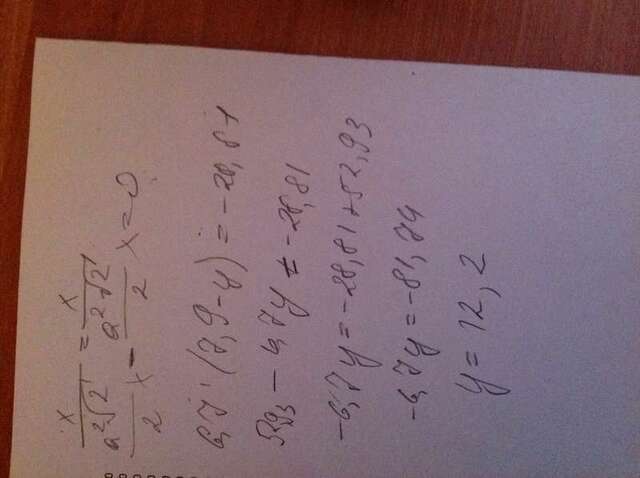 x x
a²√2 = a²√2
2 x - 2 x = 0
6,7·(7,9-y) = -28,81
5293 - 6,7y = -28,81
-6,7y = -28,81+52,93
-6,7y = -81,74
y = 12,2